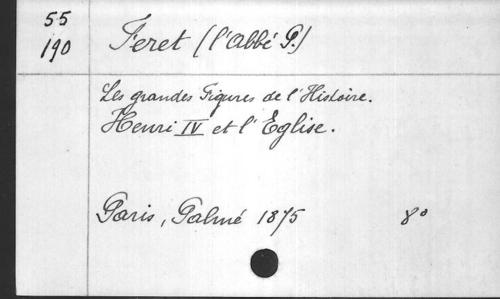 55
190
Feret (l'abbé P.)
Les grandes Figures de l'Histoire.
Henri IV et l'Eglise.
Paris, Palmé 1875 8°